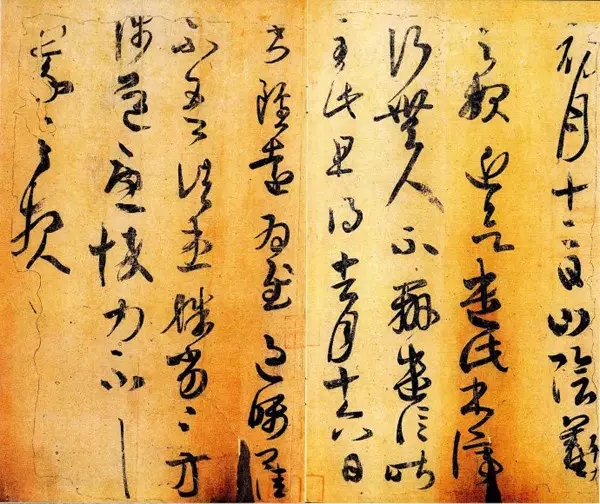 初月十二日山陰羲
之報近欲遣此書停
行無人不辦遣信昨
至此且得去月十六日
書雖遠為慰過囑
不吾諸患殆劣劣方
涉道憂悴力不具
羲之報